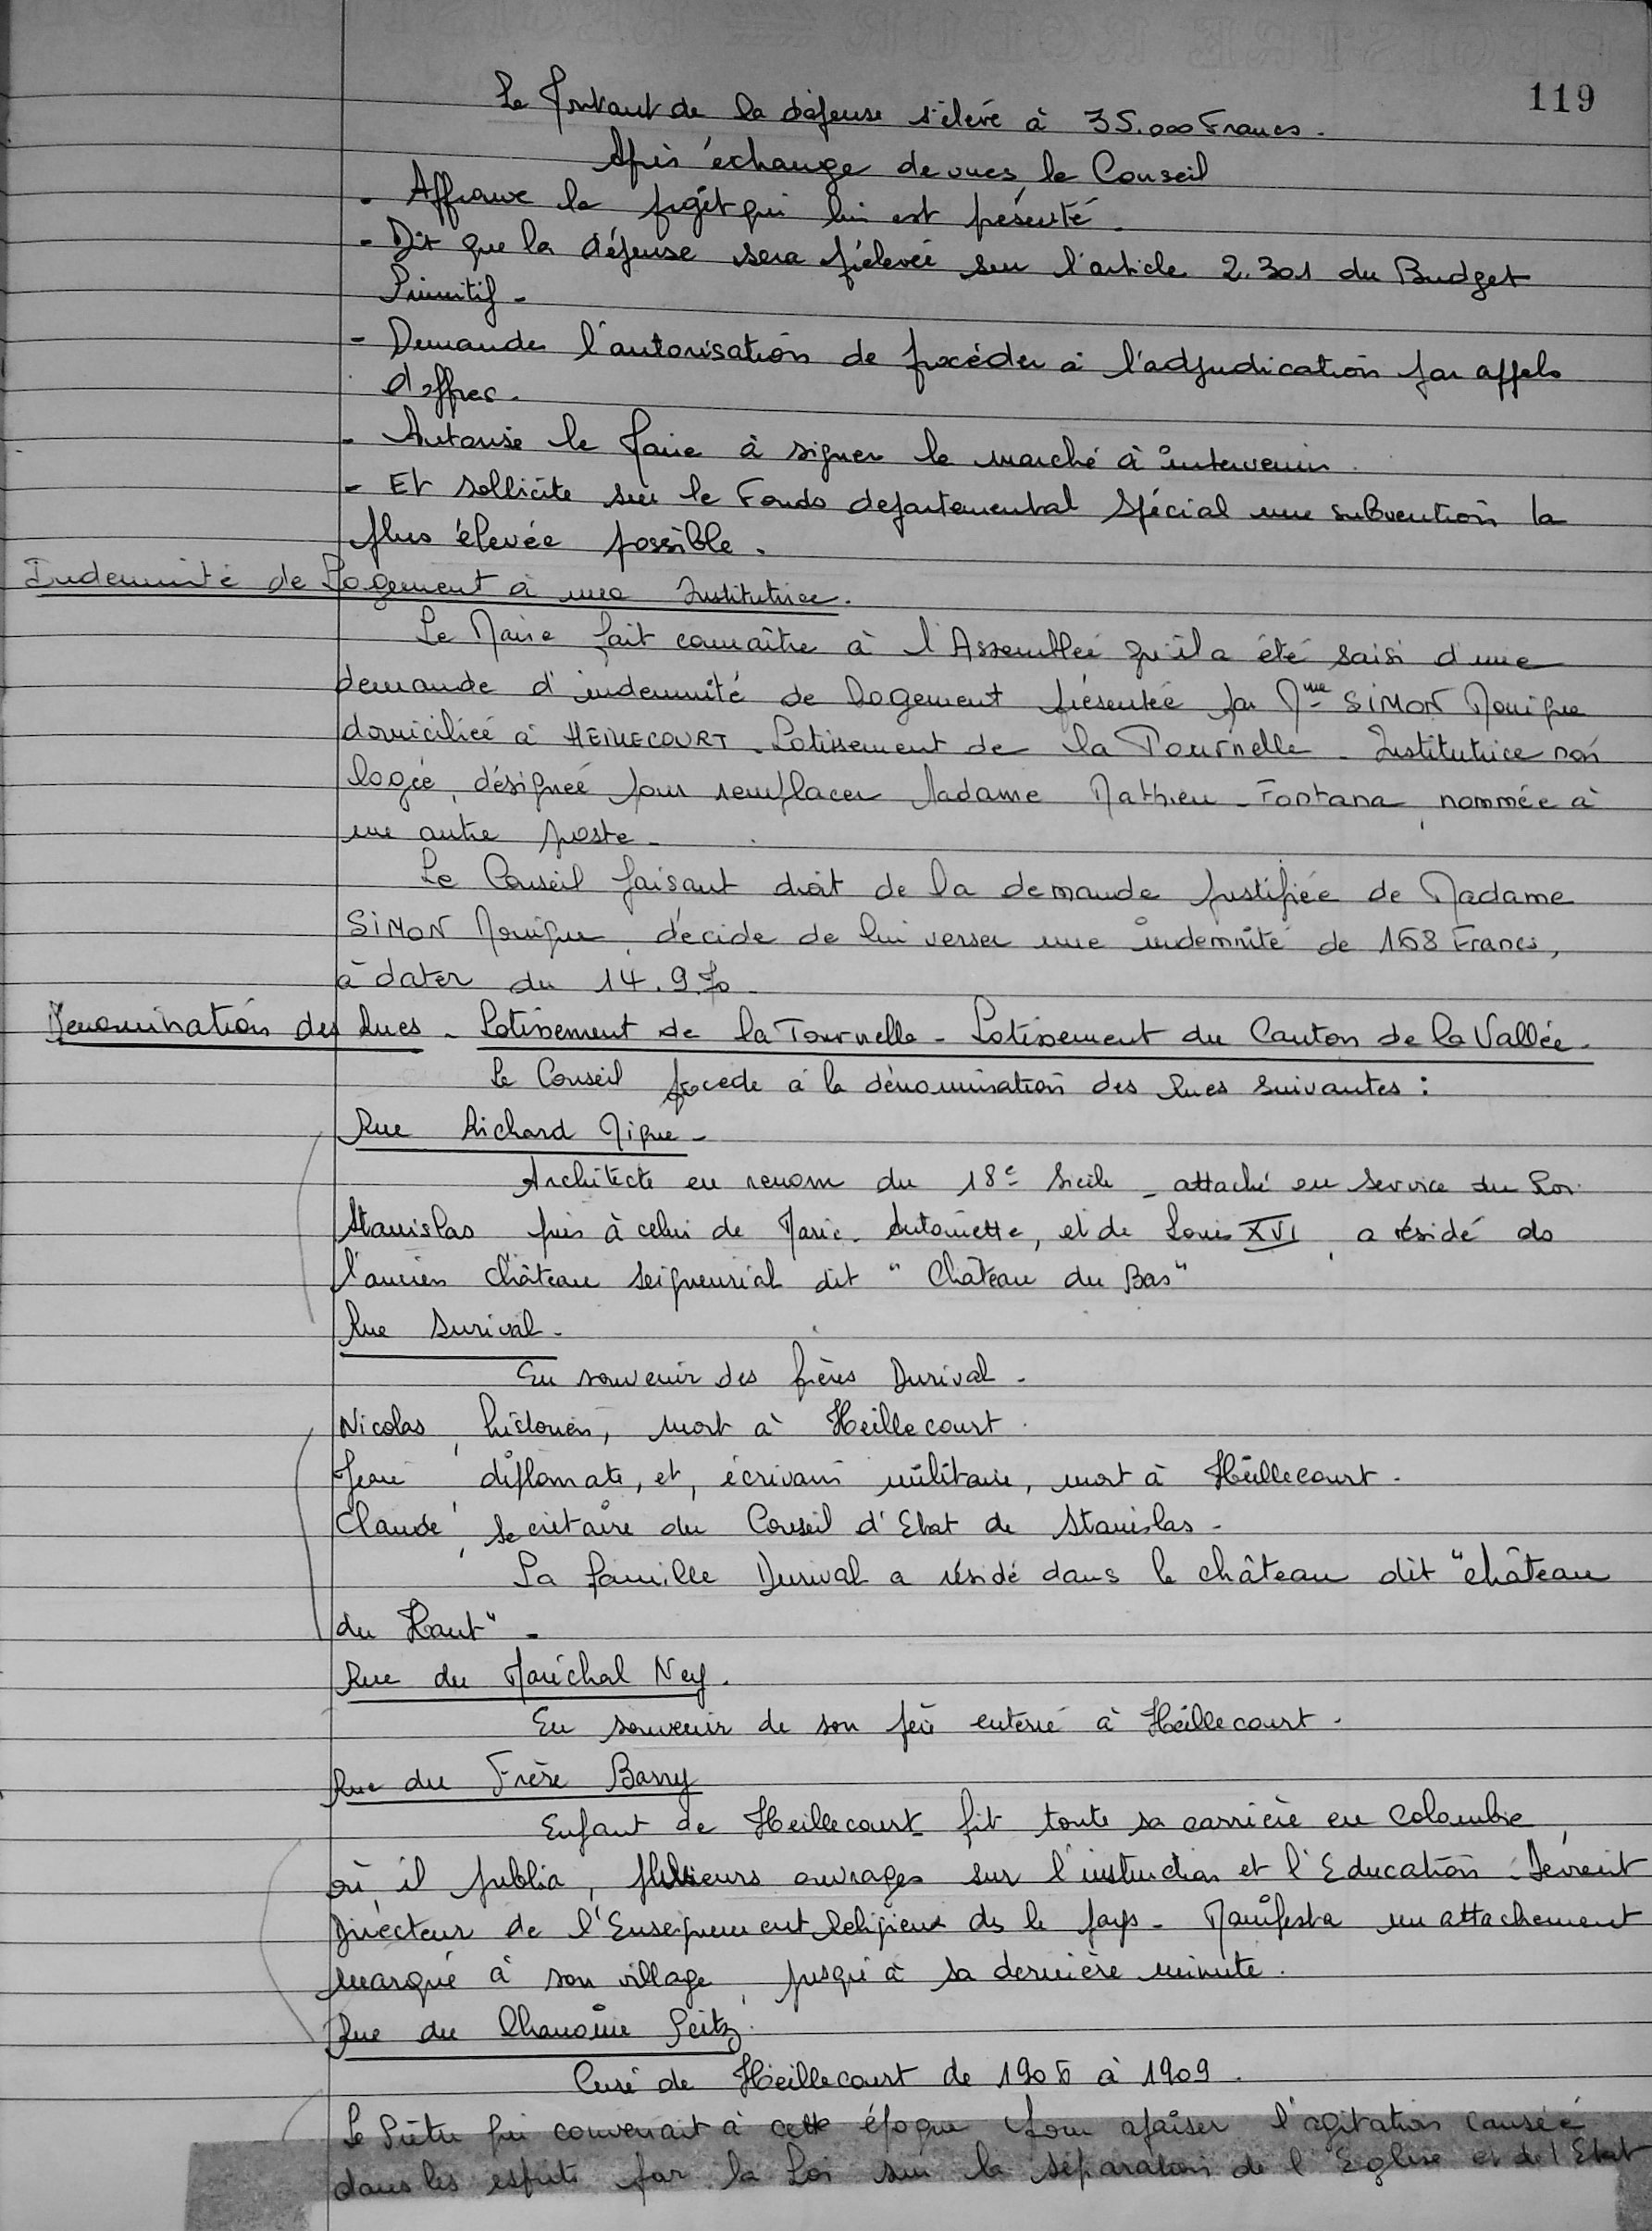 119
Le Montant de la dépense s'élève à 35.000 Francs.
Après échange de vues, le Conseil
- Approuve le projet qui lui est présenté.
- Dit que la dépense sera prélevée sur l'article 2.301 du Budget
Primitif -
- Demande l'autorisation de procéder à l'adjudication par appels
d'offres.
- Autorise le Maire à signer le marché à intervenir.
- Et sollicite sur le Fonds départemental Spécial une subvention la
plus élevée possible.
Indemnité de Logement à une Institutrice.
Le Maire fait connaître à l'Assemblée qu'il a été saisi d'une
demande d'indemnité de logement présentée par Mme SIMON Monique
domiciliée à HEILLECOURT - Lotissement de la Tournelle - Institutrice non
logée, désignée pour remplacer Madame Mathieu-Fontana, nommée à
une autre poste -
Le Conseil faisant droit de la demande justifiée de Madame
SIMON Monique, décide de lui verser une indemnité de 168 Francs,
à dater du 14.9.70 -
Dénomination des Rues - Lotissement de la Tournelle - Lotissement du Canton de la Vallée -
Le Conseil procède à la dénomination des Rues suivantes :
Rue Richard Mique -
Architecte en renom du 18e Siècle - attaché au Service du Roi
Stanislas puis à celui de Marie-Antoinette, et de Louis XVI, a résidé ds
l'ancien Château Seigneurial dit "Château du Bas"
Rue Durival -
En souvenir des frères Durival -
Nicolas, historien, mort à Heillecourt.
Jean, diplomate, et, écrivain militaire, mort à Heillecourt -
Claude, secrétaire du Conseil d'Etat de Stanislas -
La famille Durival a résidé dans le château dit "château
du Haut" -
Rue du Maréchal Ney.
En souvenir de son père enterré à Heillecourt -
Rue du Frère Barry
Enfant de Heillecourt - fit toute sa carrière en Colombie,
où il publia, plusieurs ouvrages sur l'instruction et l'Education - Devient
Directeur de l'Enseignement Religieux ds le pays - Manifesta un attachement
marqué à son village, jusqu'à sa dernière minute.
Rue du Chanoine
Curé de Heillecourt de à 1909.
Le Prêtre qui convenait à cette époque pour apaiser l'agitation causée
dans les esprits par la Loi sur la séparation de l'Eglise et de l'Etat